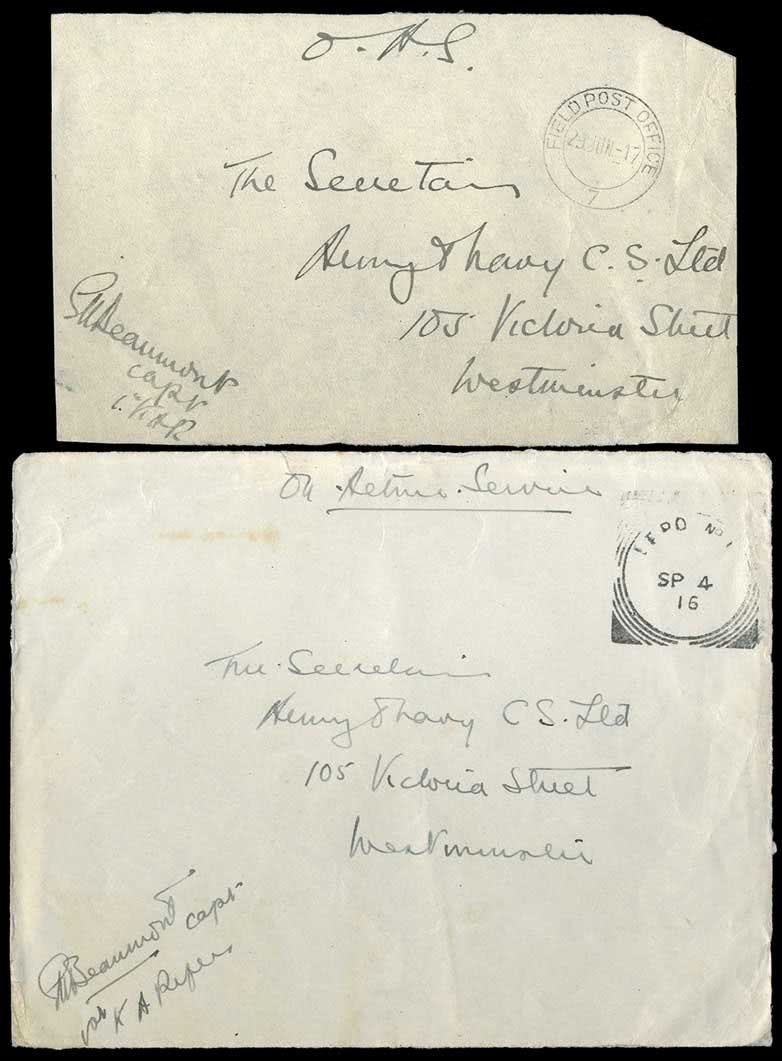 O.A.S.
FIELD POST OFFICE
29 JUN-17
7
The Secretary
Army & Navy C.S. Ltd
105 Victoria Street
Westminster
Beaumont
Capt
K A R
On Active Service
No 1
SP 4
16
The Secretary
Army & Navy C S. Ltd
105 Victoria Street
Westminster
Beaumont Capt
K A Rifles